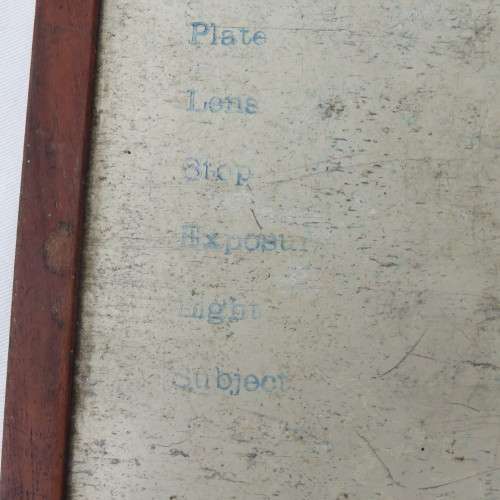 Plate
Lens
Stop
Exposur
Light
Subject